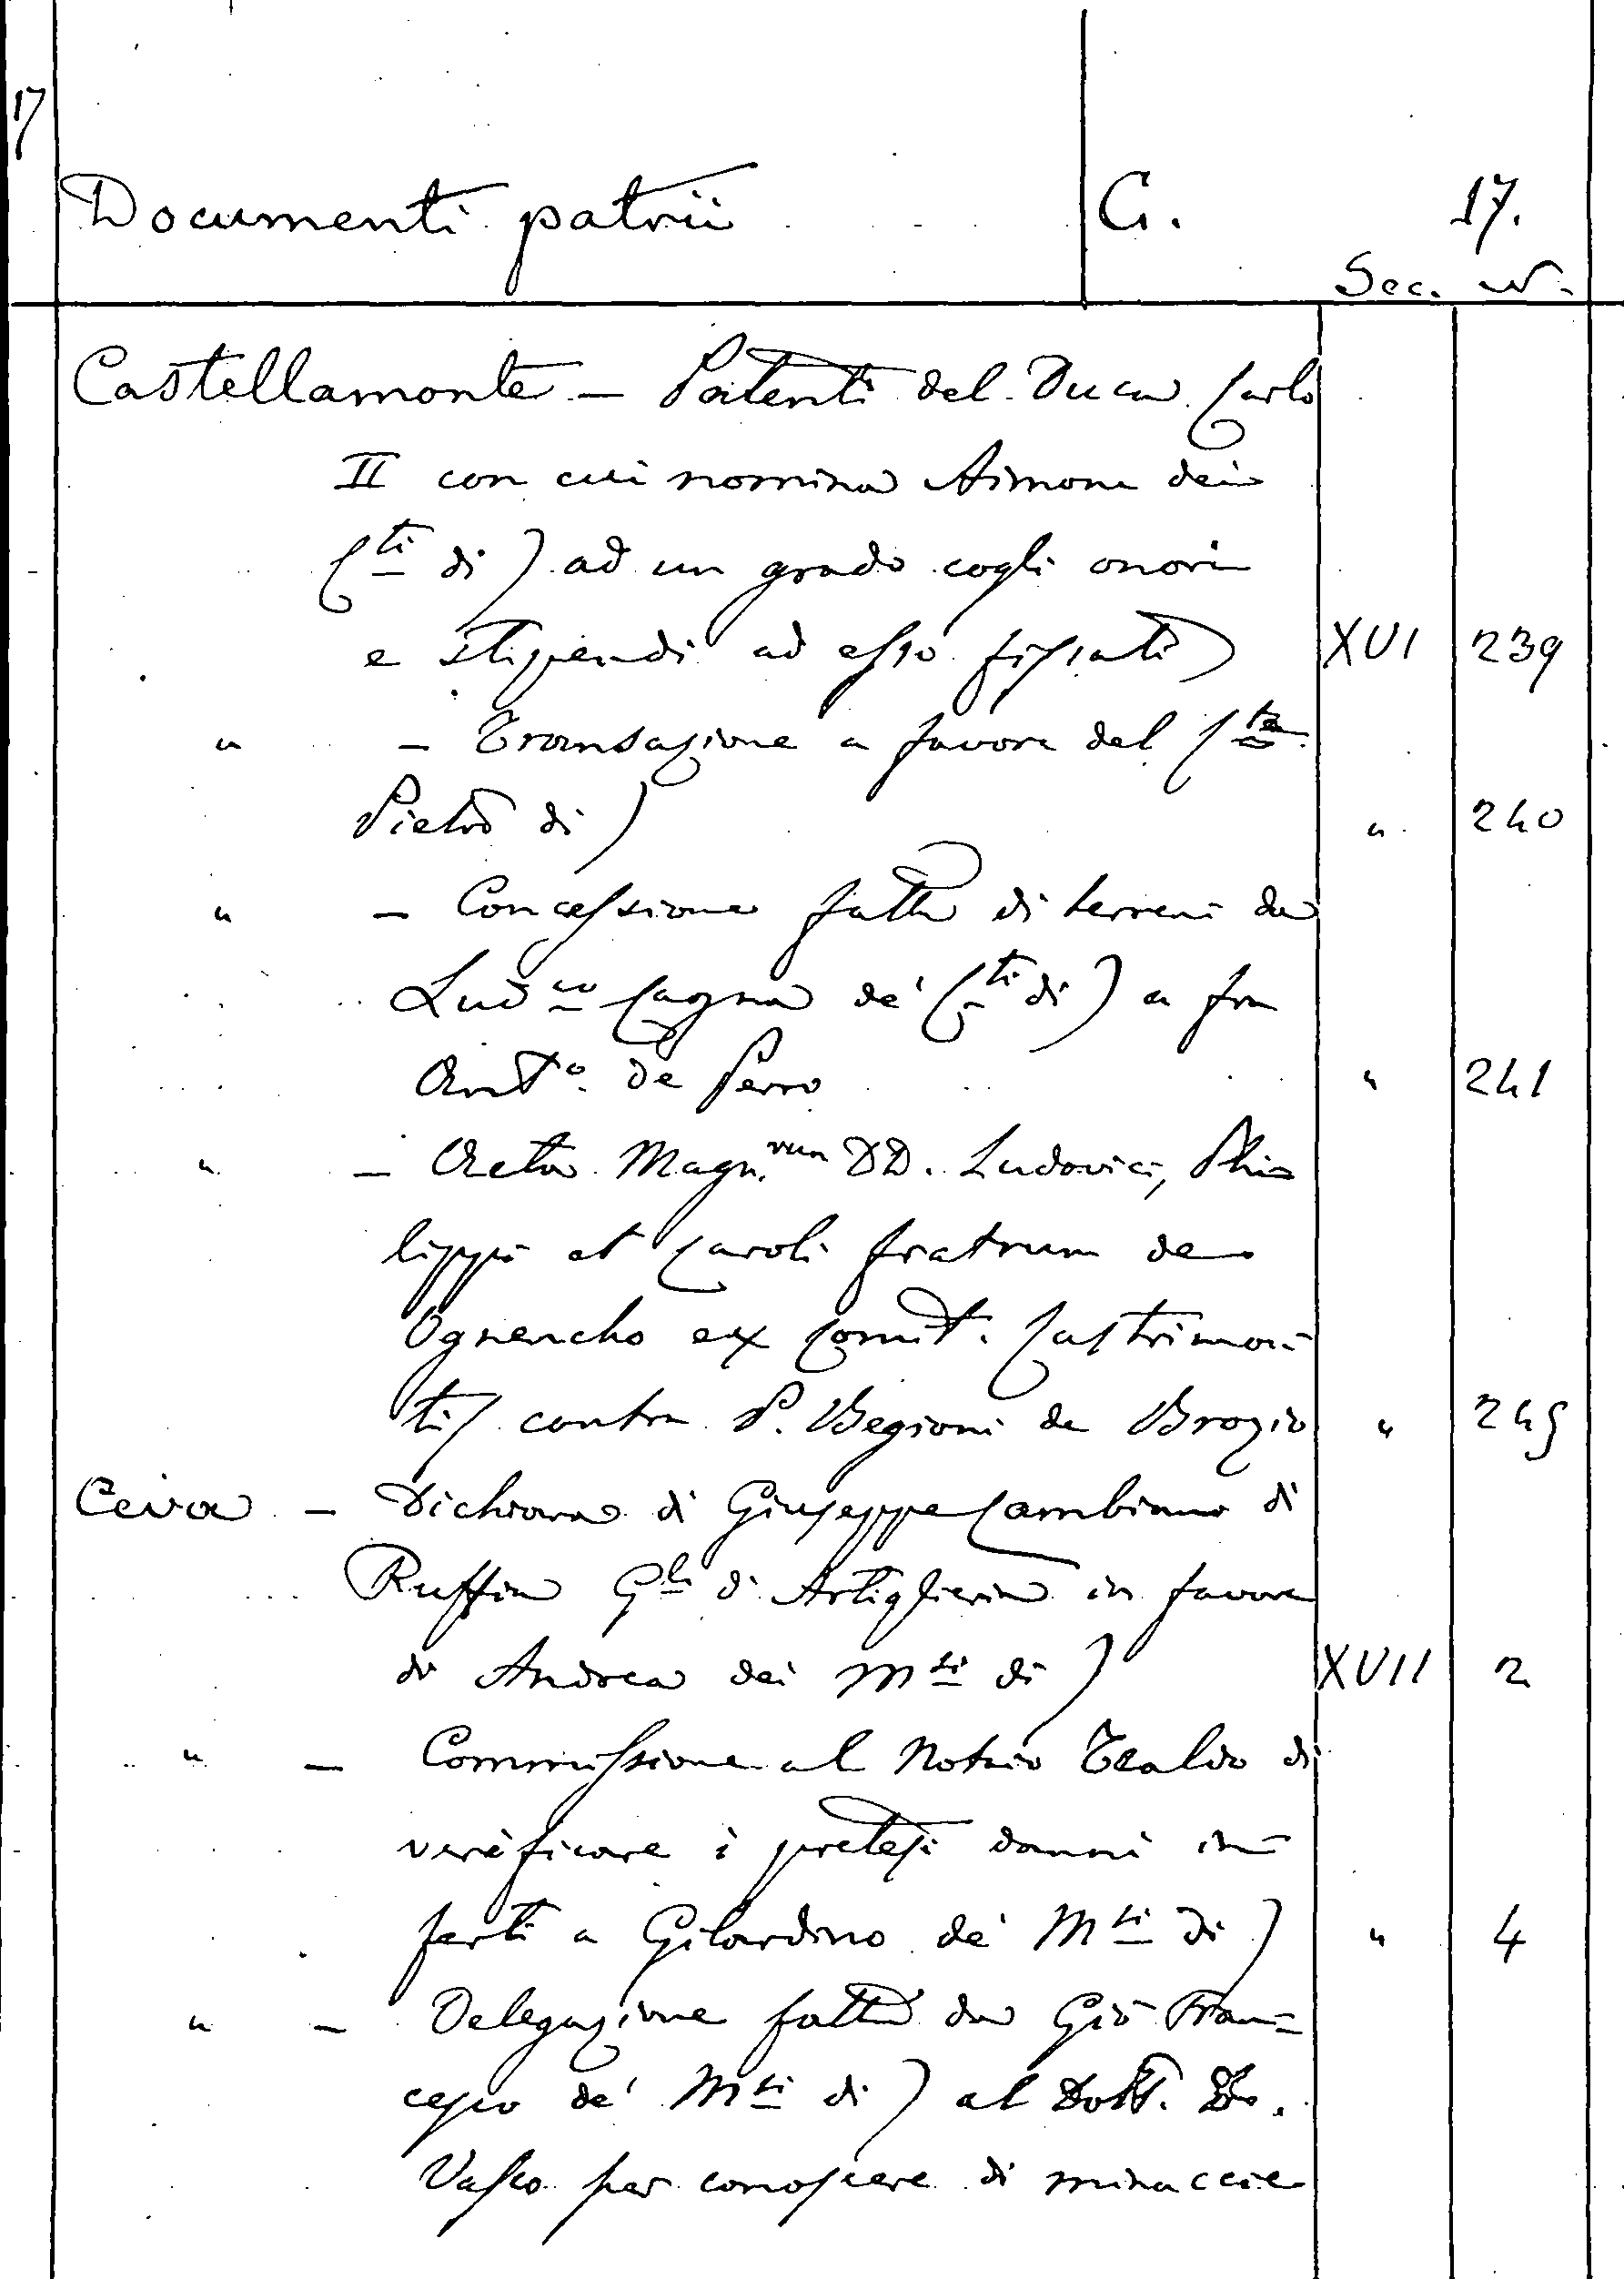 17
Documenti patrii C. 17.
Sec. N.
Castellamonte – Patenti del Duca Carlo
II con cui nomina Aimone dei
C.ti di) ad un grado cogli onori
e stipendi ad esso fissati XVI 239
" – Transazione a favore del C.te
Pietro di) " 240
" – Concessione fatta di terreni da
Lud.co Cagna de' C.ti di) a fra
Ant.o de Perro " 241
" – Acta Magn.rum DD. Ludovici, Phi-
lippi et Caroli fratrum de
Ognencho ex Comit. Castrimon-
tis contra P. Begioni de Brozio " 245
Ceva – Dichiara di Giuseppe Cambiano di
Ruffia G.le d'Artiglieria in favore
di Andrea dei M.si di) XVII 2
" – Commissione al Notaio Tealdo di
verificare i pretesi danni in-
ferti a Gilardino de' M.si di) " 4
" – Delegazione fatta da Gio Fran=
cesco de' M.si di) al Dott.
Vasco per conoscere di minaccie